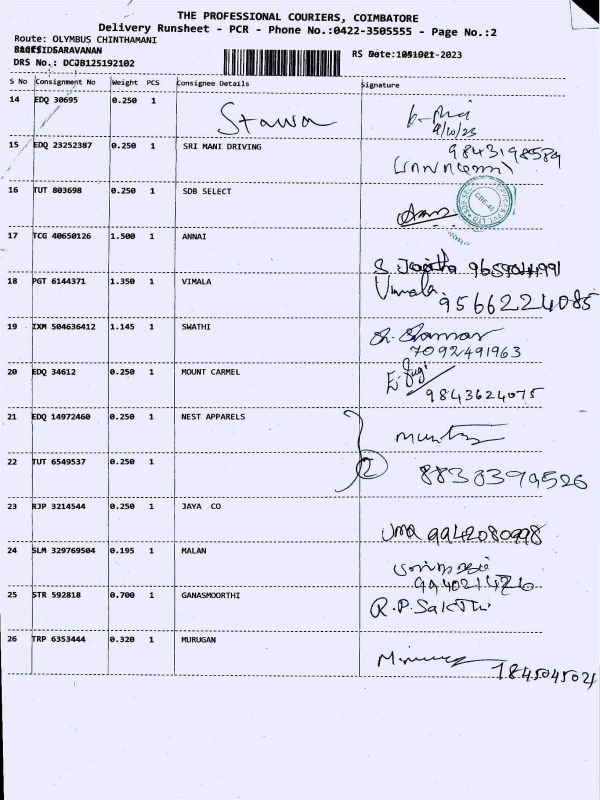 THE PROFESSIONAL COURIERS, COIMBATORE
Delivery Runsheet - PCR - Phone No.:0422-3505555 - Page No.:2
Route: OLYMBUS CHINTHAMANI
SARAVANAN
RS Date: -2023
DRS No.: DCJB125192102
S No Consignment No Weight PCS Consignee Details Signature
14 EDQ 30695 0.250 1
9/10/23
15 EDQ 23252387 0.250 1 SRI MANI DRIVING
9843198584
16 TUT 803698 0.250 1 SDB SELECT
17 TCG 40650126 1.500 1 ANNAI
18 PGT 6144371 1.350 1 VIMALA
Vimala
9566224085
19 IXM 504636412 1.145 1 SWATHI
7092491963
20 EDQ 34612 0.250 1 MOUNT CARMEL
9843624075
21 EDQ 14972460 0.250 1 NEST APPARELS
22 TUT 6549537 0.250 1
2
23 RJP 3214544 0.250 1 JAYA CO
UMA 9942080998
24 SLM 329769504 0.195 1 MALAN
25 STR 592818 0.700 1 GANASMOORTHI
R.P. Sakthi
26 TRP 6353444 0.320 1 MURUGAN